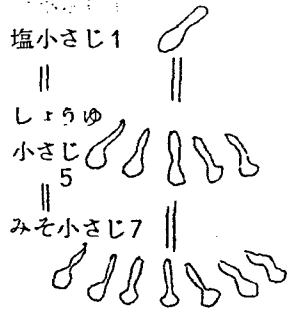 塩小さじ1
||
しょうゆ
小さじ
5
||
みそ小さじ7